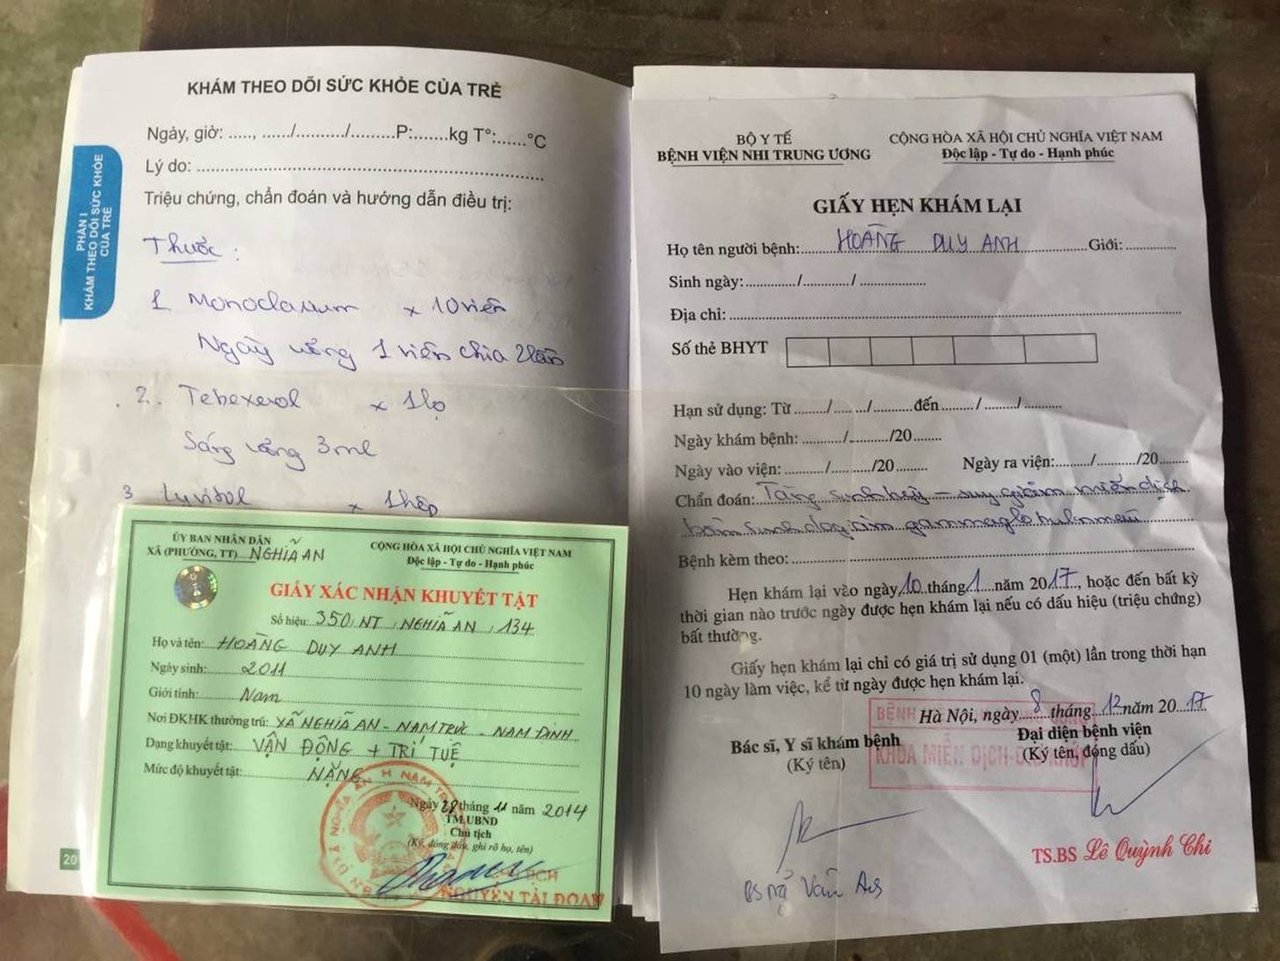 KHÁM THEO DÕI SỨC KHỎE CỦA TRẺ
Ngày, giờ: ....., ....../........../.........P:.......kg T°:......°C
Lý do: ..............................................................
Triệu chứng, chẩn đoán và hướng dẫn điều trị:
PHẦN I
KHÁM THEO DÕI SỨC KHỎE
CỦA TRẺ
Thuốc:
1. x 10 viên
Ngày uống 1 viên chia 2 lần
2. Tebexerol x 1 lọ
Sáng uống 3ml
3 x 1 hộp
20
ỦY BAN NHÂN DÂN
XÃ (PHƯỜNG, TT) NGHĨA AN
CỘNG HÒA XÃ HỘI CHỦ NGHĨA VIỆT NAM
Độc lập - Tự do - Hạnh phúc
GIẤY XÁC NHẬN KHUYẾT TẬT
Số hiệu: 350/NT/NGHĨA AN/134
Họ và tên: HOÀNG DUY ANH
Ngày sinh: 2011
Giới tính: Nam
Nơi ĐKHK thường trú: XÃ NGHĨA AN - NAM TRỰC - NAM ĐỊNH
Dạng khuyết tật: VẬN ĐỘNG + TRÍ TUỆ
Mức độ khuyết tật: NẶNG
Ngày 28 tháng 11 năm 2014
TM.UBND
Chủ tịch
(Ký, đóng dấu, ghi rõ họ, tên)
NGUYỄN TÀI ĐOAN
BỘ Y TẾ
BỆNH VIỆN NHI TRUNG ƯƠNG
CỘNG HÒA XÃ HỘI CHỦ NGHĨA VIỆT NAM
Độc lập - Tự do - Hạnh phúc
GIẤY HẸN KHÁM LẠI
Họ tên người bệnh: HOÀNG DUY ANH Giới: ............
Sinh ngày:............/............/ ................
Địa chỉ: ..............................................................
Số thẻ BHYT
Hạn sử dụng: Từ ......../......../.........đến ......../ ......../.........
Ngày khám bệnh: ........../........../20........
Ngày vào viện: ......../........../20........ Ngày ra viện:........./........./20.....
Chẩn đoán: - suy giảm miễn dịch
bẩm sinh
Bệnh kèm theo:..............................................................
Hẹn khám lại vào ngày 10 tháng 1 năm 2017, hoặc đến bất kỳ
thời gian nào trước ngày được hẹn khám lại nếu có dấu hiệu (triệu chứng)
bất thường.
Giấy hẹn khám lại chỉ có giá trị sử dụng 01 (một) lần trong thời hạn
10 ngày làm việc, kể từ ngày được hẹn khám lại.
Hà Nội, ngày 8 tháng 12 năm 2017
Bác sĩ, Y sĩ khám bệnh
(Ký tên)
Đại diện bệnh viện
(Ký tên, đóng dấu)
KHOA MIỄN DỊCH
TS.BS Lê Quỳnh Chi